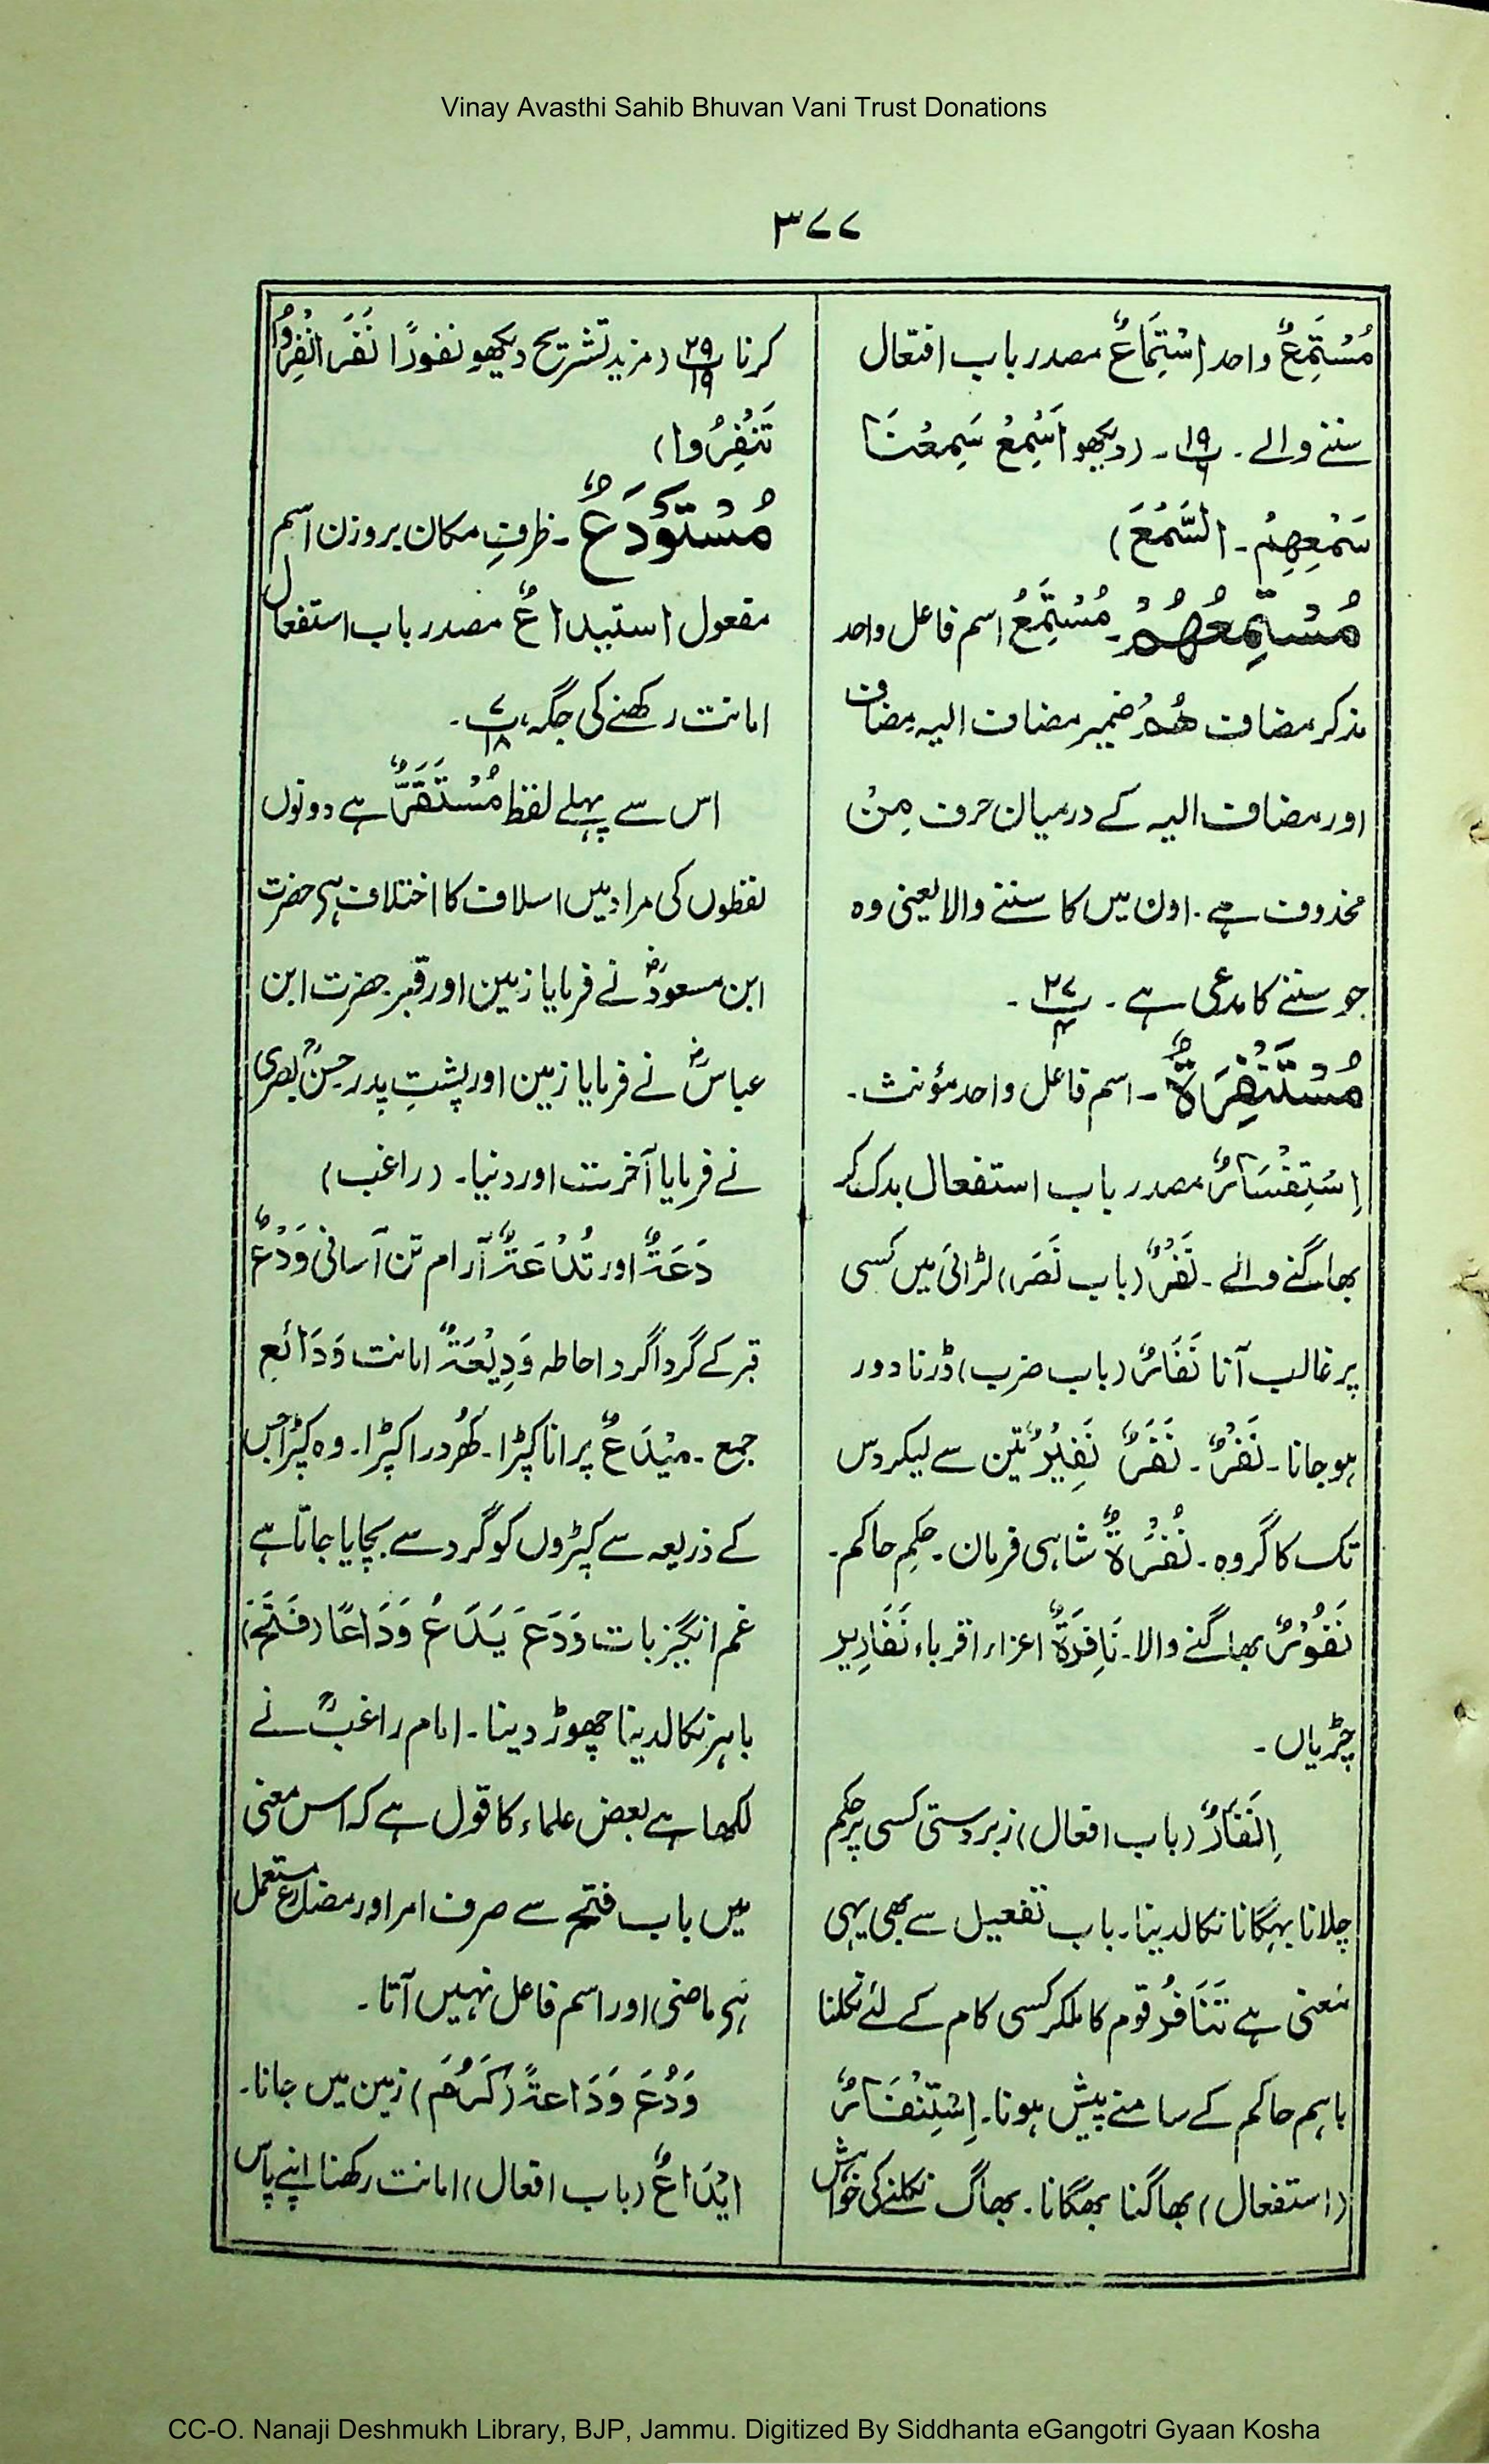 Vinay Avasthi Sahib Bhuvan Vani Trust Donations
۳۷۷
مُسْتَمِعٌ واحد اِسْتِمَاعٌ مصدر باب افتعال
سننے والے ۔ پ۱۹/۶ ۔ (دیکھو اَسْمِعْ سَمِعْنَا
سَمْعِهِمْ ۔ السَّمْعَ)
مُسْتَمِعُهُمْ ۔ مُسْتَمِعُ اسم فاعل واحد
مذکر مضاف هُمْ ضمیر مضاف الیہ مضاف
اور مضاف الیہ کے درمیان حرف مِنْ
محذوف ہے ۔ اون میں کا سننے والا یعنی وہ
جو سننے کا مدعی ہے ۔ پ۲۷/۴ ۔
مُسْتَنْفِرَةٌ ۔ اسم فاعل واحد مؤنث ۔
اِسْتِنْفَارٌ مصدر باب استفعال بدک کر
بھاگنے والے ۔ نَفْرٌ (باب نَصَرَ) لڑائی میں کسی
پر غالب آنا نَفَارٌ (باب ضرب) ڈرنا دور
ہوجانا ۔ نَفْرٌ ۔ نَفَرٌ نَفِیْرٌ تین سے لیکر دس
تک کا گروہ ۔ نُفْرَةٌ شاہی فرمان ۔ حکم حاکم ۔
نَفُوْرٌ بھاگنے والا ۔ نَافِرَةٌ اعزاء اقرباء نَفَارِیر
چڑیاں ۔
اِنْفَارٌ (باب افعال) زبردستی کسی پر حکم
چلانا بہگانا نکالدینا ۔ باب تفعیل سے بھی یہی
معنی ہے تَنَافُر قوم کا ملکر کسی کام کے لئے نکلنا
باہم حاکم کے سامنے پیش ہونا ۔ اِسْتِنْفَارٌ
(استفعال) بھاگنا بھگانا ۔ بھاگ نکلنے کی خواہش
کرنا پ۲۹/۱۹ (مزید تشریح دیکھو نفورًا نَفَرَ انْفِرُوْا
تَنْفِرُوا)
مُسْتَوْدَعٌ ۔ ظرفِ مکان بروزن اسم
مفعول استیداعٌ مصدر باب استفعال
امانت رکھنے کی جگہ، پ۷/۱۸ ۔
اس سے پہلے لفظ مُسْتَقَرٌّ ہے دونوں
لفظوں کی مراد میں اسلاف کا اختلاف ہی حضرت
ابن مسعودؓ نے فرمایا زمین اور قبر حضرت ابن
عباسؓ نے فرمایا زمین اور پشتِ پدر حسنؒ بصری
نے فرمایا آخرت اور دنیا ۔ (راغب)
دَعَةٌ اور تُدْعَةٌ آرام تن آسانی وَدْعٌ
قبر کے گرداگرد احاطہ وَدِیْعَةٌ امانت وَدَائَع
جمع ۔ میْدَعٌ پرانا کپڑا ۔ کھُردرا کپڑا ۔ وہ کپڑا جس
کے ذریعہ سے کپڑوں کو گرد سے بچایا جاتا ہے
غم انگیز بات وَدَعَ یَدَعُ وَدَاعًا (فَتَحَ)
باہر نکالدینا چھوڑ دینا ۔ امام راغبؒ نے
لکھا ہے بعض علماء کا قول ہے کہ اس معنی
میں باب فتح سے صرف امر اور مضارع مستعمل
ہی ماضی اور اسم فاعل نہیں آتا ۔
وَدُعَ وَدَاعةً (کَرُمَ) زمین میں جانا ۔
ایْدَاعٌ (باب افعال) امانت رکھنا اپنے پاس
CC-O. Nanaji Deshmukh Library, BJP, Jammu. Digitized By Siddhanta eGangotri Gyaan Kosha